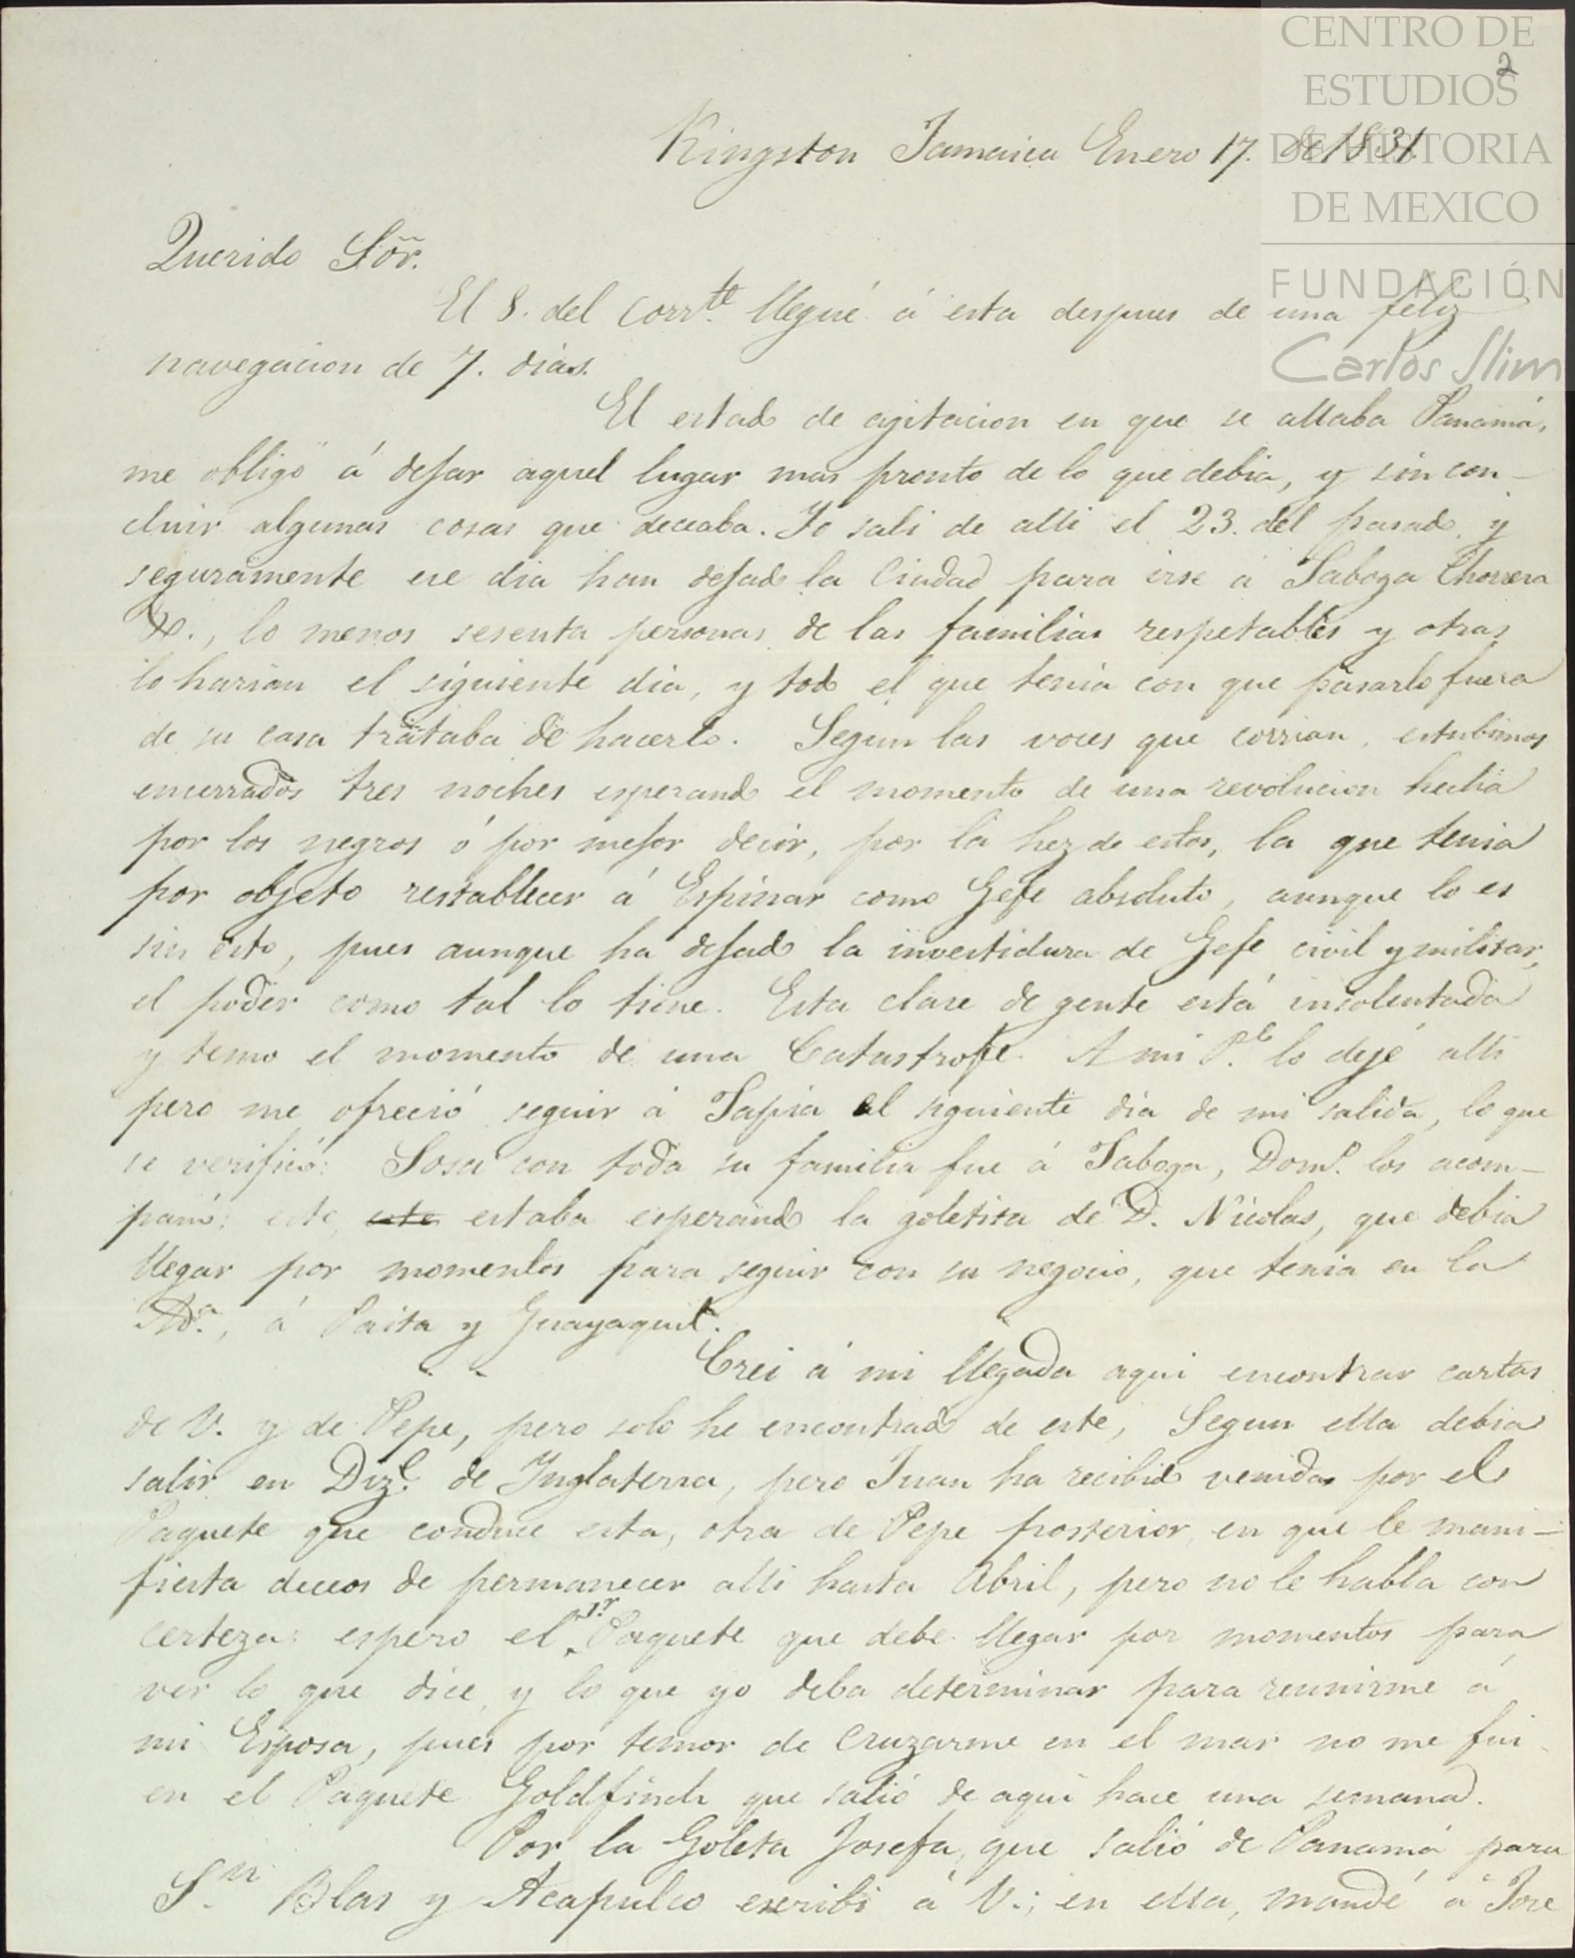 CENTRO DE
ESTUDIOS
DE HISTORIA
DE MEXICO
FUNDACIÓN
Carlos Slim
2
Kingston Jamaica Enero 17. de 1831.
Querido Sõr.
El 8. del Corr.te llegué á esta despues de una feliz
navegacion de 7. dias.
El estado de agitacion en que se allaba Panamá,
me obligó á dejar aquel lugar mas pronto de lo que debia, y sin con-
cluir algunas cosas que deceaba. Yo sali de alli el 23. del pasado, y
seguramente ese dia han dejado la Ciudad para irse á Taboga Chorrera
&., lo menos sesenta personas de las familias respetables y otras
lo harian el siguiente dia, y todo el que tenia con que pasarlo fuera
de su casa trataba de hacerlo. Segun las voces que corrian, estubimos
encerrados tres noches esperando el momento de una revolucion hecha
por los negros ó por mejor decir, por la hez de estos, la que tenia
por objeto restablecer á Espinar como Gefe absoluto, aunque lo es
sin esto, pues aunque ha dejado la investidura de Gefe civil y militar,
el poder como tal lo tiene. Esta clase de gente está insolentada
y temo el momento de una Catastrofe. A mi P.e lo dejé alli
pero me ofreció seguir á Tapia al siguiente dia de mi salida, lo que
se verificó: Sosa con toda su familia fue á Taboga, Dom.o los acom-
pañó: este este estaba esperando la goletita de D. Nicolas, que debia
llegar por momentos para seguir con su negocio, que tenia en la
Ad.a, á Paita y Guayaquil.
Crei á mi llegada aqui encontrar cartas
de V. y de Pepe, pero solo he encontrado de este, Segun ella debia
salir en Diz.e de Inglaterra, pero Juan ha recibido venida por el
Paquete que conduce esta, otra de Pepe posterior, en que le mani-
fiesta deceos de permanecer alli hasta Abril, pero no le habla con
certeza: espero el 1.r Paquete que debe llegar por momentos para
ver lo que dice, y lo que yo deba determinar para reunirme á
mi Esposa, pues por temor de cruzarme en el mar no me fui
en el Paquete Goldfinch que salió de aqui hace una semana.
Por la Goleta Josefa, que salió de Panamá para
S.n Blas y Acapulco escribi á V.; en ella, mandé á José